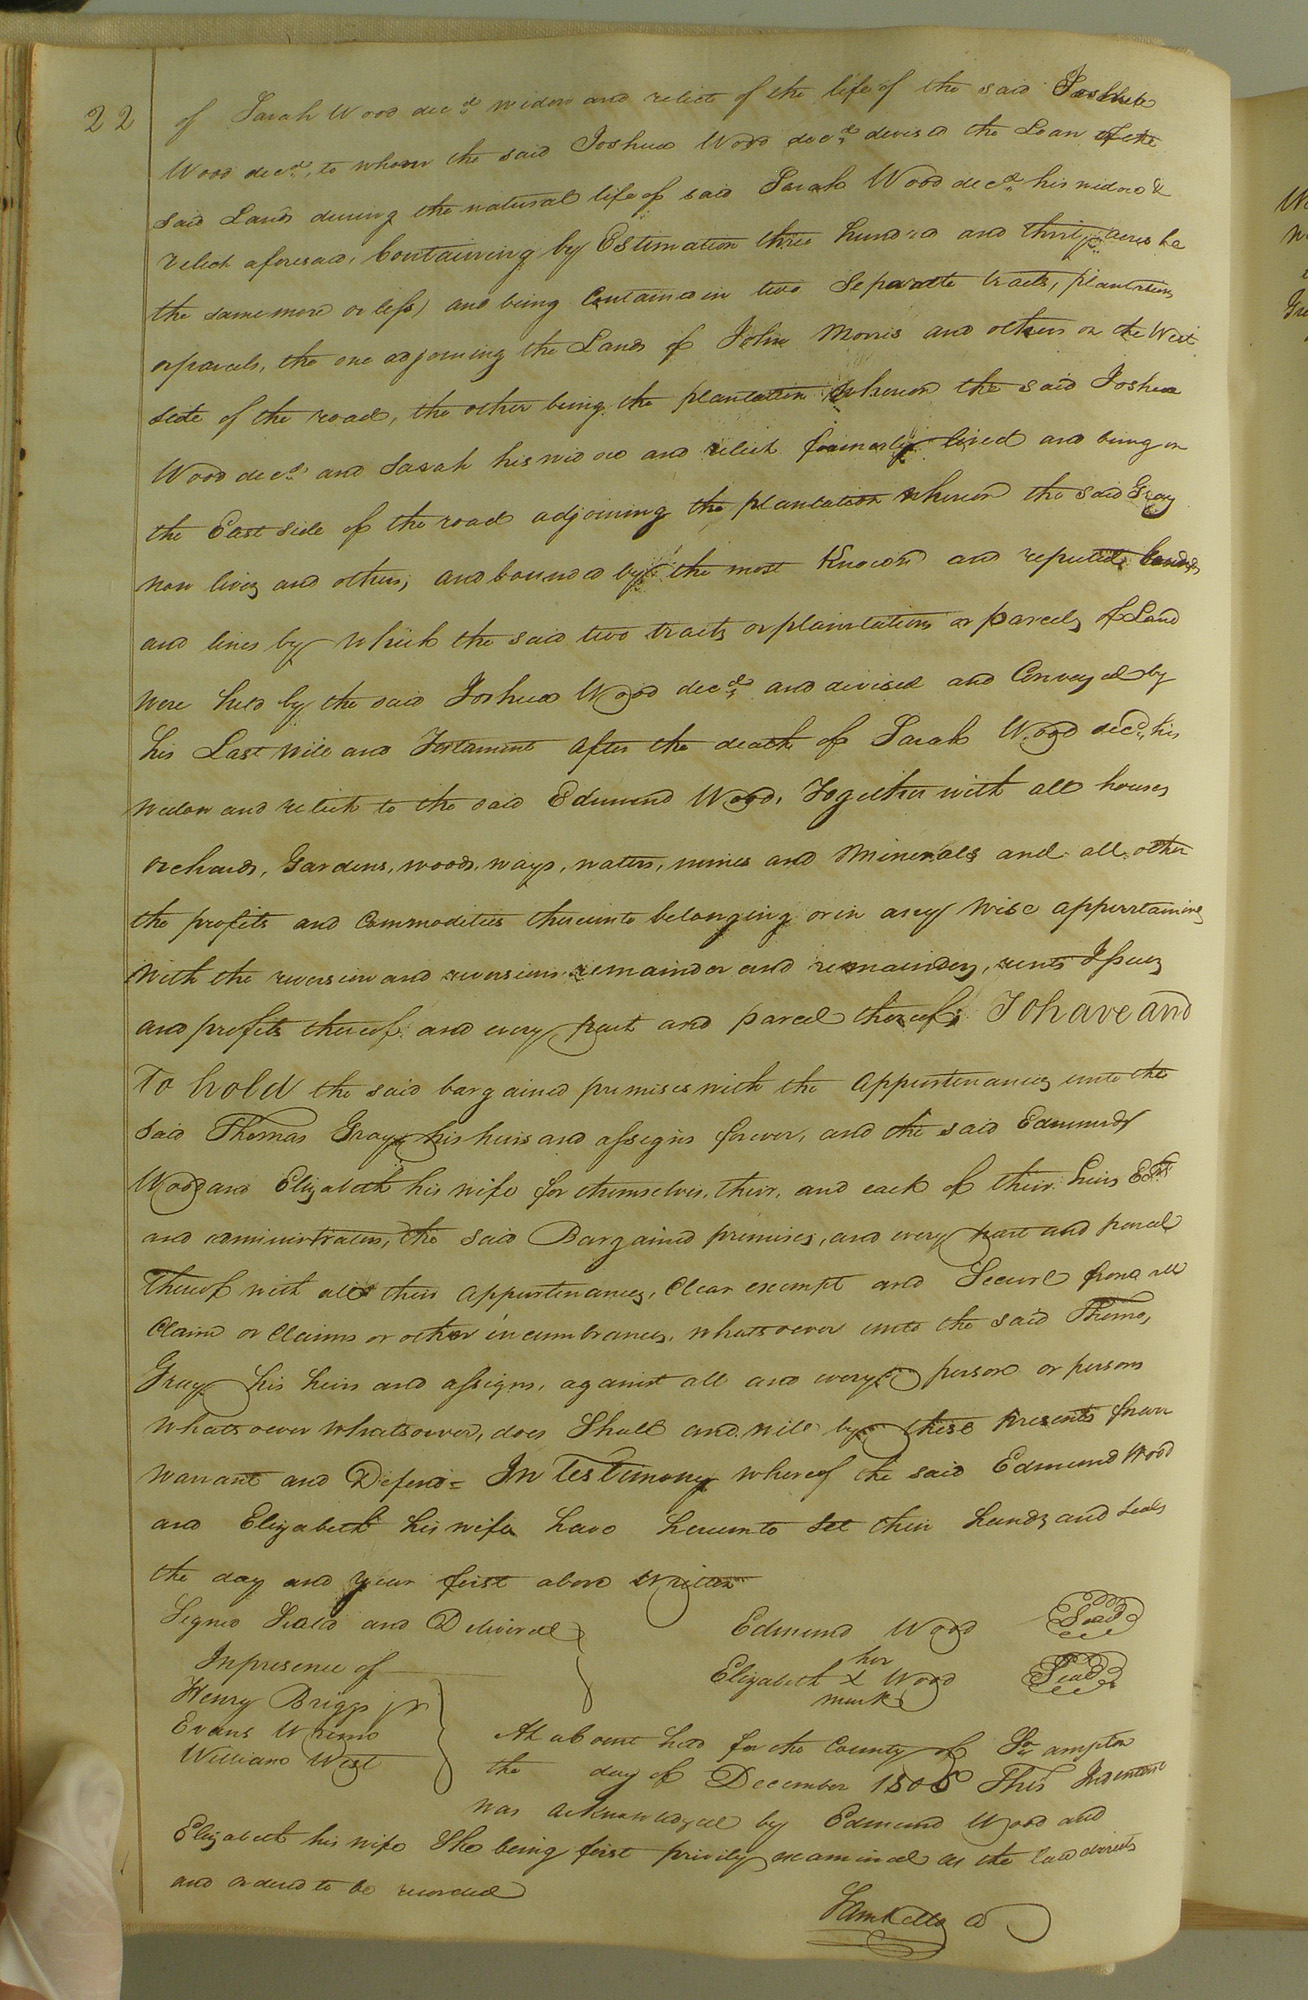 22
of Sarah Wood decd widow and relict of the life of the said Joshua
Wood decd, to whom the said Joshua Wood decd devised the Loan of the
said Land during the natural life of said Sarah Wood decd his widow &
relict aforesaid, Containing by Estimation three hundred and thirty acres be
the same more or less) and being Contained in two Separate tracts, plantations
or parcels, the one adjoining the Lands of John Morris and others on the West
side of the road, the other being the plantation Whereon the said Joshua
Wood decd and Sarah his widow and relict formerly lived and being on
the East side of the road adjoining the plantation whereon the said Gray
now lives and others, and bounded by the most Known and reputed bounds
and lines by Which the said two tracts or plantations or parcels of Land
were held by the said Joshua Wood decd and devised and Conveyed by
his Last Will and Testament after the death of Sarah Wood decd, his
widow and relict to the said Edmund Wood. Together with all houses
orchards, Gardens, woods, ways, waters, mines and Minerals and all other
the profits and Commodities thereunto belonging or in any Wise appurtaining
With the reversion and reversions remainder and remainders, rents Issues
and profits thereof and every part and parcel thereof; To have and
To hold the said bargained premises with the appurtenances unto the
said Thomas Gray his heirs and assigns forever, and the said Edmund
Wood and Elizabeth his wife for themselves, their, and each of their heirs Exrs
and administrators, the said Bargained premises, and every part and parcel
thereof with all their appurtenances, Clear exempt and Secure from all
Claim or Claims or other incumbrances, whatsoever unto the said Thomas
Gray his heirs and assigns, against all and every person or persons
whatsoever whatsoever, does Shall and will by these presents forever
warrant and Defend = In Testimony whereof the said Edmund Wood
and Elizabeth his wife have hereunto Set their hands and seals
the day and year first above Written
Signed Seald and Delivered
Edmund Wood Seal
In presence of
her
Elizabeth X Wood Seal
mark
Henry Briggs jr
Evans
William West
At a Court held for the County of Southampton
the day of December 1806 This Indenture
was acknowledged by Edmund Wood and
Elizabeth his wife She being first privily examined as the law directs
and ordered to be recorded